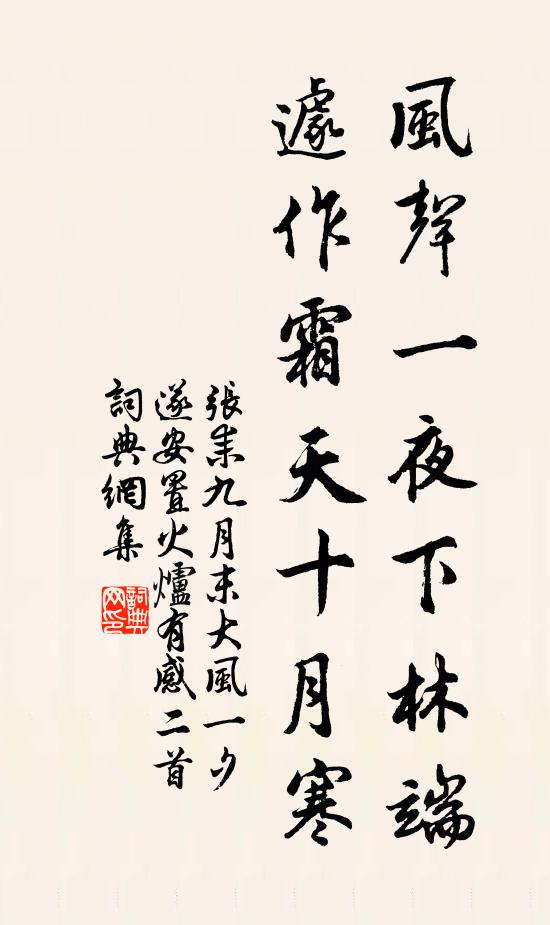 風聲一夜下林端
遽作霜天十月寒
張耒九月末大風一夕
遂安置火爐有感二首
詞典網集
詞典
网印